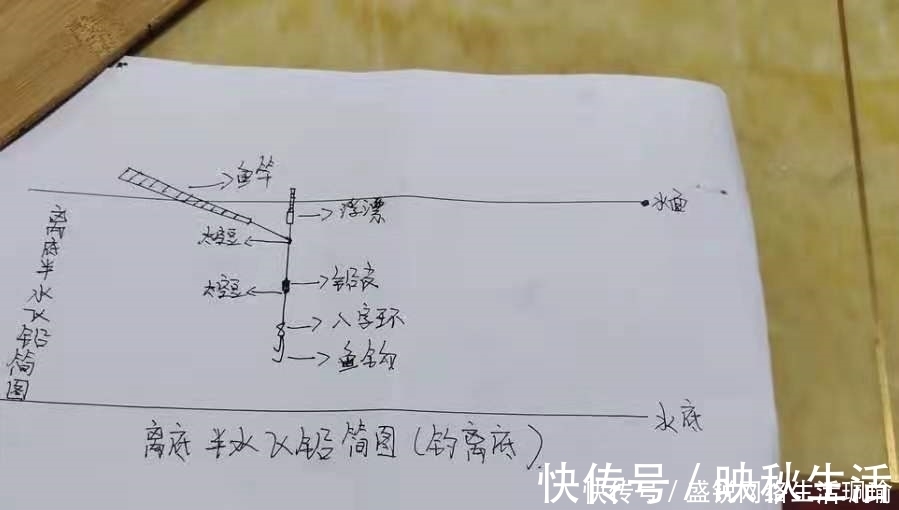 鱼竿
浮漂
水面
太空豆
太空豆
铅皮
八字环
鱼钩
离底半水飞铅简图
水底
离底半水飞铅简图(钓离底)
快传号/映秋生活